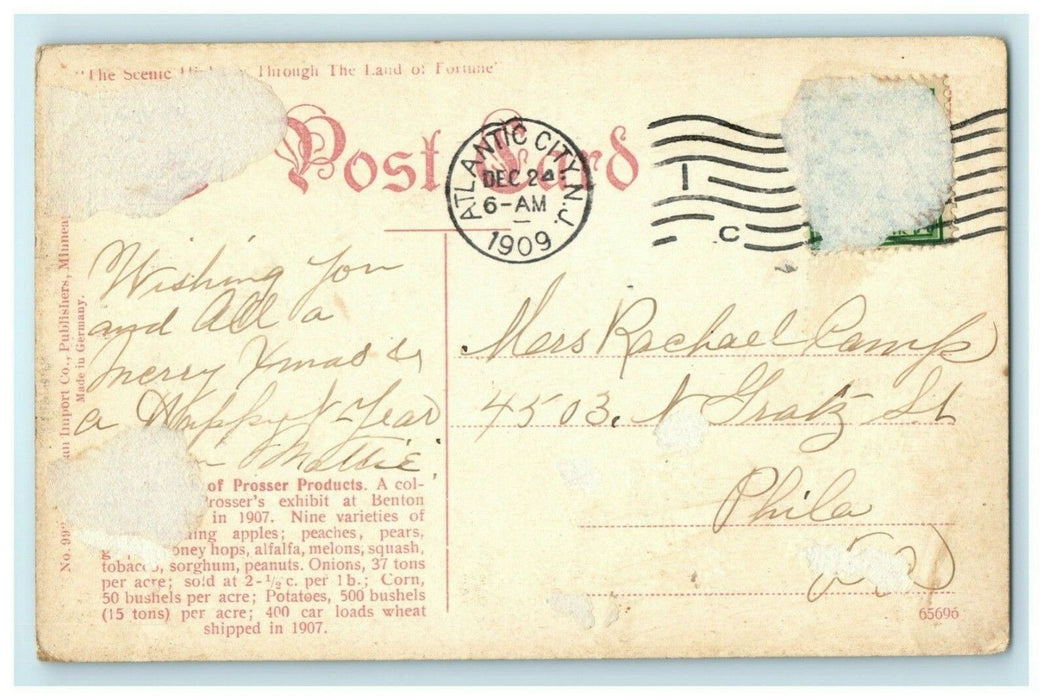 "The Scenic Through The Land of Fortune"
Post Card
ATLANTIC CITY, N.J.
DEC 24
6-AM
1909
C
Wishing you
and All a
Merry Xmas &
a Happy N-Year
Mattie
Mers Rachael Camp
4503. N Gratz St
Phila
of Prosser Products. A col-
Prosser's exhibit at Benton
in 1907. Nine varieties of
apples; peaches, pears,
honey hops, alfalfa, melons, squash,
tobacco, sorghum, peanuts. Onions, 37 tons
per acre; sold at 2-½ c. per lb.; Corn,
50 bushels per acre; Potatoes, 500 bushels
(15 tons) per acre; 400 car loads wheat
shipped in 1907.
No. 992 Import Co., Publishers,
Made in Germany.
65696